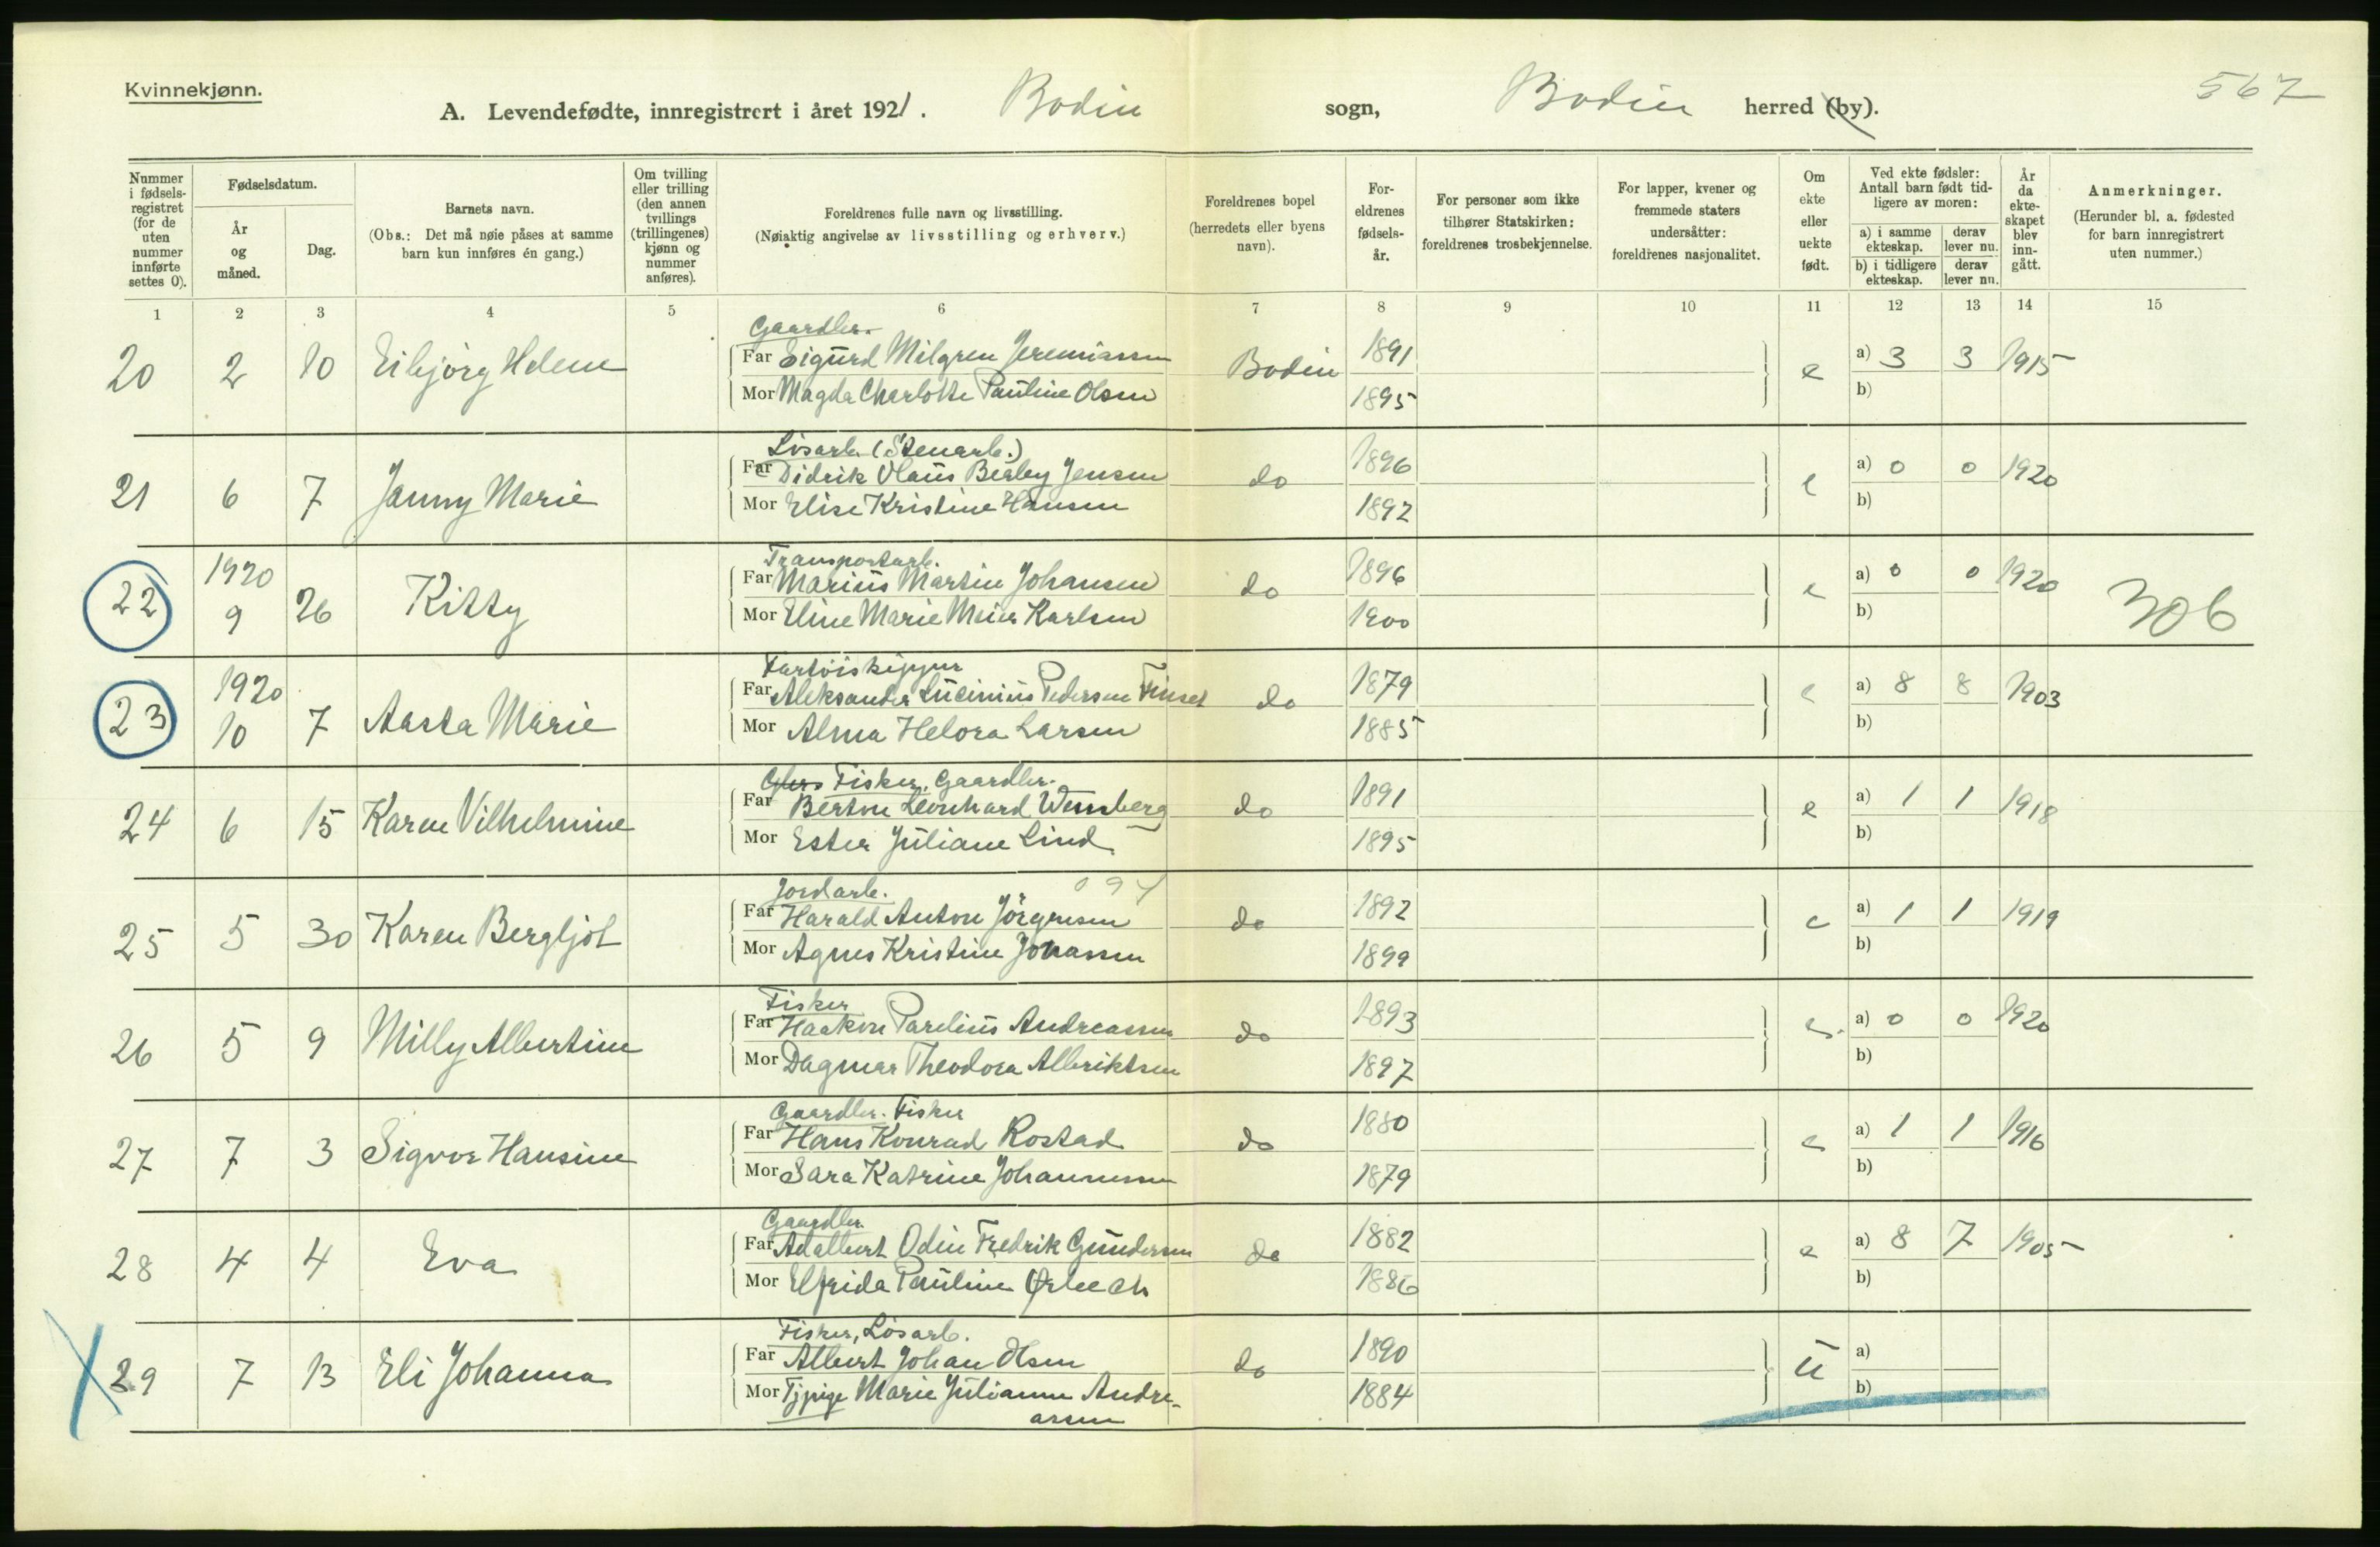 Kvinnekjønn.
567
A. Levendefødte, innregistrert i året 1921. Bodin sogn, Bodin herred (by).
Nummer i fødsels-registret (for de uten nummer innførte settes 0).
Fødselsdatum.
År og måned.
Dag.
Barnets navn.
(Obs.: Det må nøie påses at samme barn kun innføres én gang.)
Om tvilling eller trilling (den annen tvillings (trillingenes) kjønn og nummer anføres).
Foreldrenes fulle navn og livsstilling.
(Nøiaktig angivelse av livsstilling og erhverv.)
Foreldrenes bopel (herredets eller byens navn).
For-eldrenes fødsels-år.
For personer som ikke tilhører Statskirken: foreldrenes trosbekjennelse.
For lapper, kvener og fremmede staters undersåtter: foreldrenes nasjonalitet.
Om ekte eller uekte født.
Ved ekte fødsler: Antall barn født tid-ligere av moren:
a) i samme ekteskap. derav lever nu.
b) i tidligere ekteskap. derav lever nu.
År da ekte-skapet blev inn-gått.
Anmerkninger.
(Herunder bl. a. fødested for barn innregistrert uten nummer.)
1 2 3 4 5 6 7 8 9 10 11 12 13 14 15
Gaardbr.
20 2 10 Eibjörg Helene Far Sigurd Milgren Jeremiassen Bodin 1891 e a) 3 3 1915
Mor Magda Charlotte Pauline Olsen 1895 b)
Lösarb. (Stenarb.)
21 6 7 Janny Marie Far Didrik Olaus Berley Jensen do 1896 e a) 0 0 1920
Mor Elise Kristine Hansen 1892 b)
Transportarb.
22 1920 9 26 Kitty Far Marius Martin Johansen do 1896 e a) 0 0 1920 306
Mor Eline Marie Meier Karlsen 1900 b)
Fartöiskipper
23 1920 10 7 Aasta Marie Far Aleksander Lucinius Pedersen Finset do 1879 e a) 8 8 1903
Mor Alma Helora Larsen 1885 b)
Fisker, Gaardbr.
24 6 15 Karen Vilhelmine Far Berton Leonhard Wennberg do 1891 e a) 1 1 1918
Mor Ester Juliane Lind 1895 b)
Jordarb.
25 5 30 Karen Bergljot Far Harald Anton Jörgensen do 1892 e a) 1 1 1919
Mor Agnes Kristine Jonassen 1899 b)
Fisker
26 5 9 Milly Albertine Far Haakon Parelius Andreassen do 1893 e. a) 0 0 1920
Mor Dagmar Theodora Albriktsen 1897 b)
Gaardbr. Fisker
27 7 3 Sigvor Hansine Far Hans Konrad Rostad do 1880 e a) 1 1 1916
Mor Sara Katrine Johannessen 1879 b)
Gaardbr.
28 4 4 Eva Far Adalbert Odin Fredrik Gundersen do 1882 e a) 8 7 1905
Mor Elfrida Pauline Ørbech 1886 b)
Fisker, Lösarb.
29 7 13 Eli Johanna Far Albert Johan Olsen do 1890 u a)
Mor Tjpige Marie Julianne Andre- 1884 b)
assen